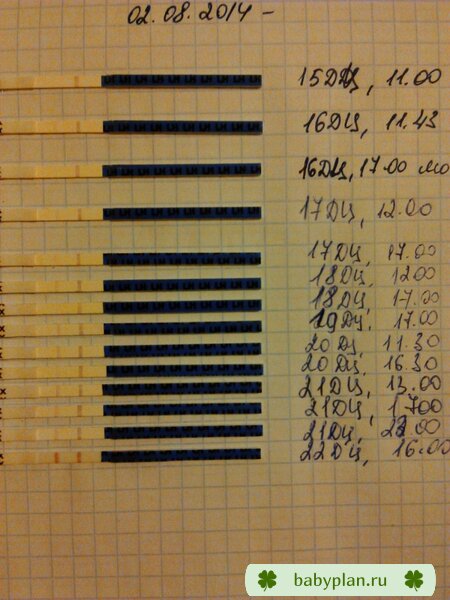 02.08.2014 -
15ДЦ, 11.00
16ДЦ, 11.43
16ДЦ, 17.00 мо
17ДЦ, 12.00
17ДЦ, 17.00
18ДЦ, 12.00
18ДЦ, 17.00
19ДЦ, 17.00
20ДЦ, 11.30
20ДЦ, 16.30
21ДЦ, 13.00
21ДЦ, 1700
21ДЦ, 00
22ДЦ, 16.00
babyplan.ru